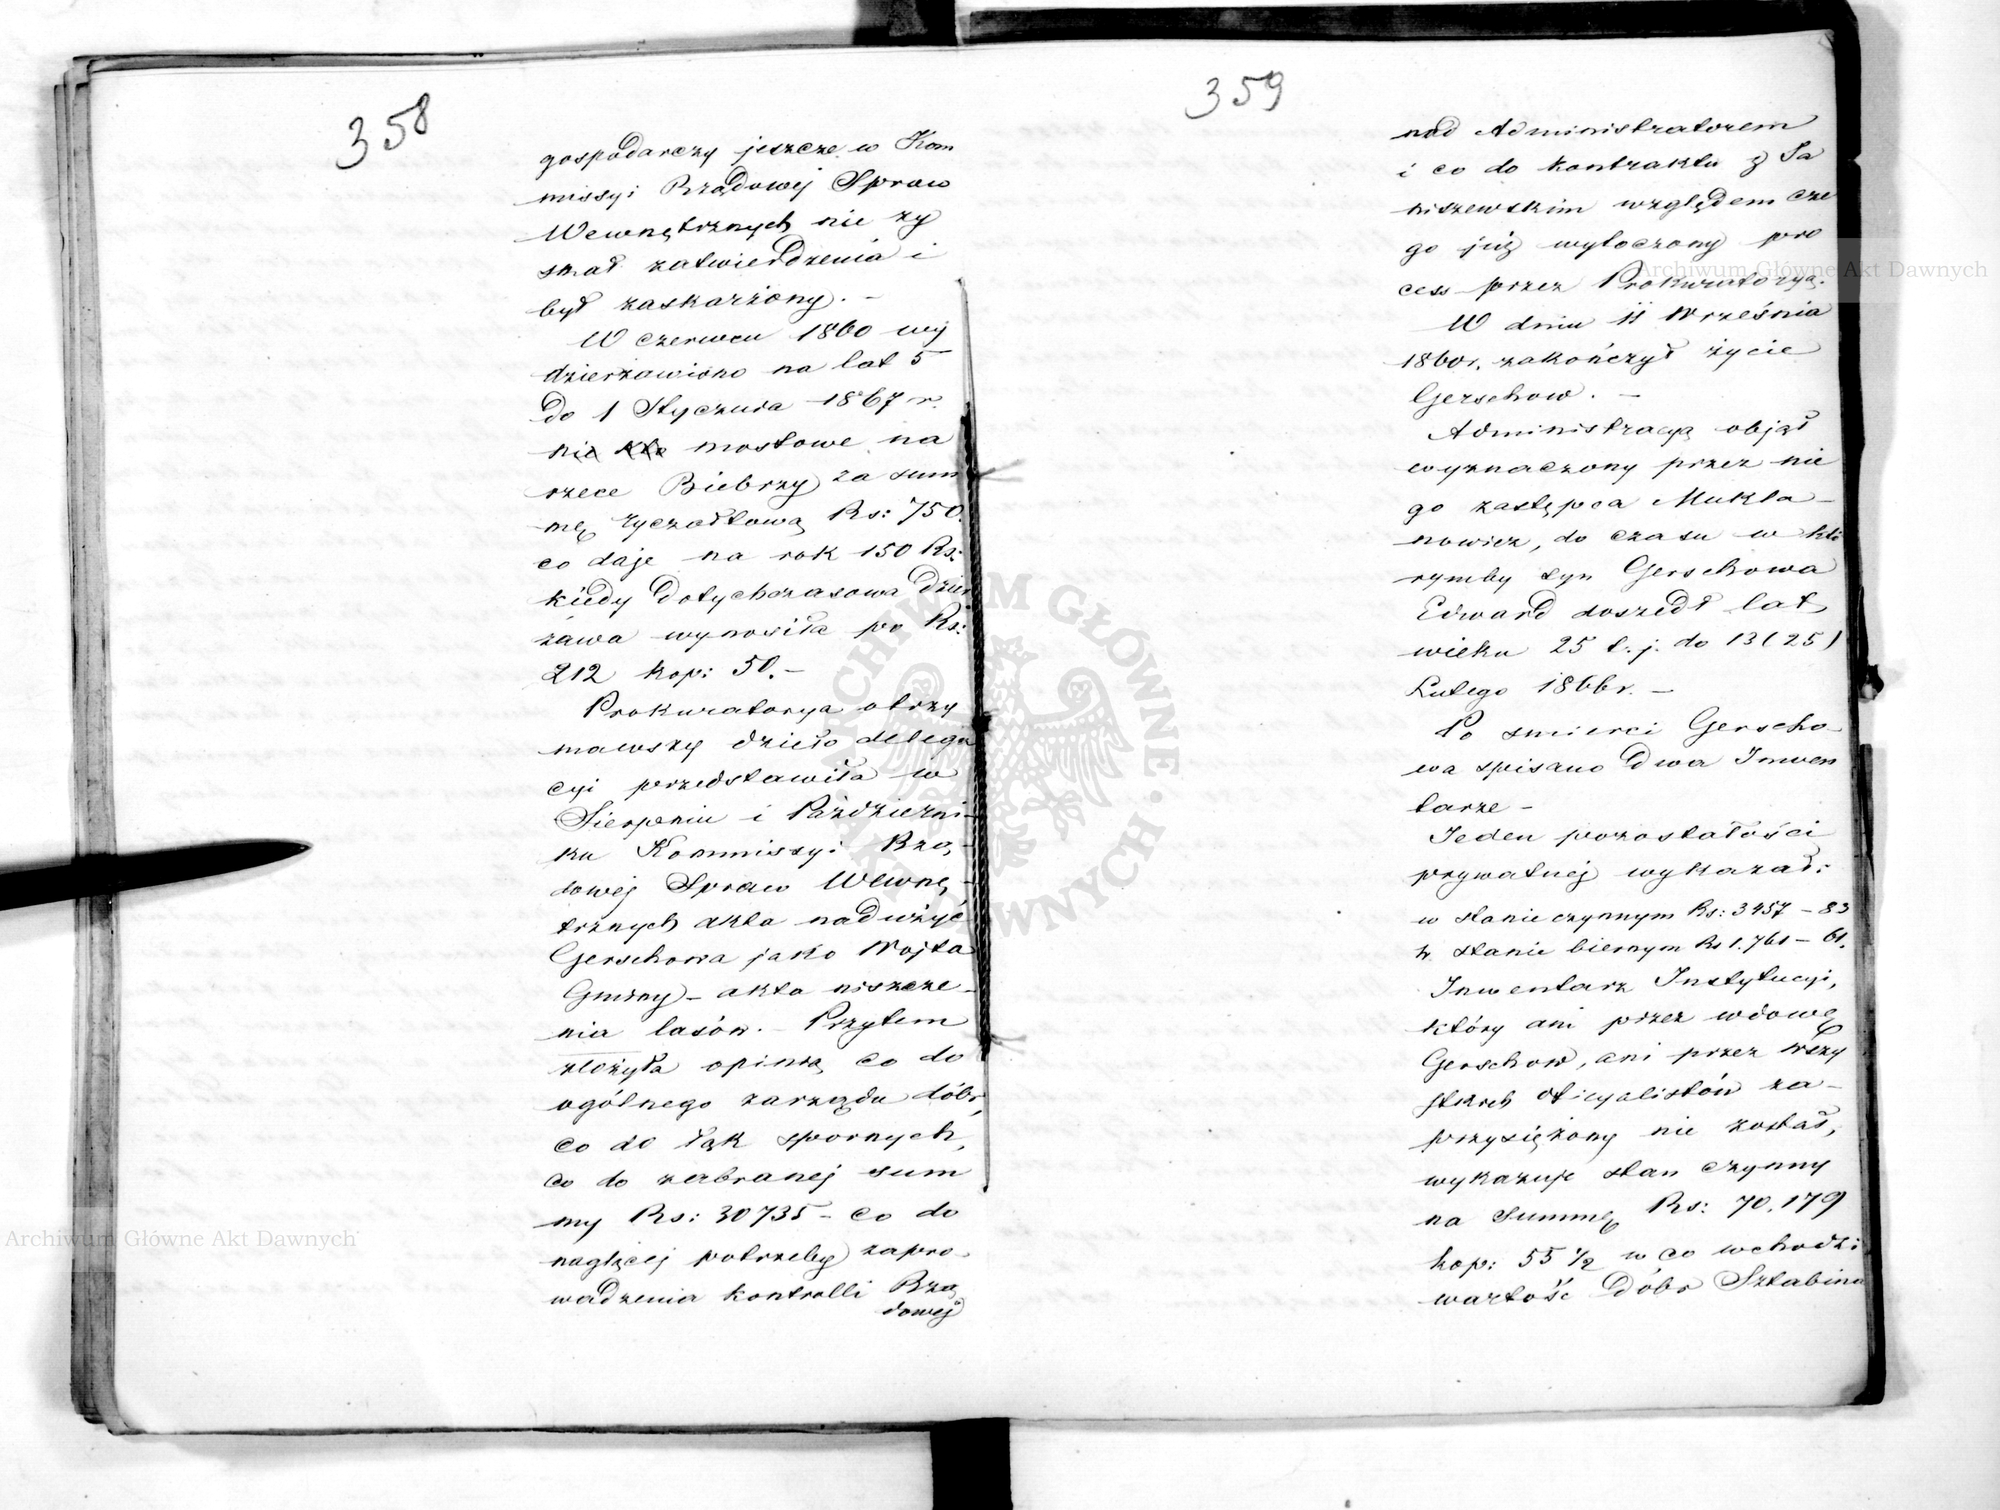 358
gospodarczy jeszcze w Kom
missyi Rządowej Spraw
Wewnętrznych nie zy
skał zatwierdzenia i
był zaskarżony. –
W czerwcu 1860 wy
dzierżawiono na lat 5
do 1 Stycznia 1867 r.
mostowe na
rzece Biebrzy za sum
mę ryczałtową Rs: 750.
co daje na rok 150 Rs:
kiedy dotychczasowa dzier
żawa wynosiła po Rs:
212 kop: 50. –
Prokuratorya otrzy
mawszy dzieło delega
cyi przedstawiła w
Sierpniu i Październi-
ku Kommissyi Rzą-
dowej Spraw Wewnę-
trznych akta nadużyć
Gerschowa jako Wojta
Gminy – akta niszcze-
nia lasów. – Przytem
złożyła opinią co do
ogólnego zarządu dóbr,
co do łąk spornych,
co do zabranej sum
my Rs: 30735 – co do
naglącej potrzeby zapro-
wadzenia kontrolli Rzą
dowej
359
nad Administratorem
i co do kontraktu z Ja
niszewskim względem cze
go już wytoczony pro
cess przez Prokuratoryą.
W dniu 11 Września
1860 r. zakończył życie
Gerschow. –
Administracyą objął
wyznaczony przez nie
go zastępca Mukla-
nowicz, do czasu w któ
rymby syn Gerschowa
Edward doszedł lat
wieku 25 t. j. do 13 (25)
Lutego 1866 r. –
Po smierci Gerscho
wa spisano dwa Inwen
tarze –
Jeden pozostałości
prywatnej wykazał:
w stanie czynnym Rs: 3457 – 83
w stanie biernym Rs 1.761 – 61.
Inwentarz Instytucyi,
który ani przez wdowę
Gerschow, ani przez wszy
stkich oficyalistów za-
przysiężony nie został,
wykazuje stan czynny
na summę Rs: 70,179
kop: 55 1/2 w co wchodzi
wartość Dóbr Sztabina
Archiwum Główne Akt Dawnych
Archiwum Główne Akt Dawnych
ARCHIWUM GŁÓWNE AKT DAWNYCH